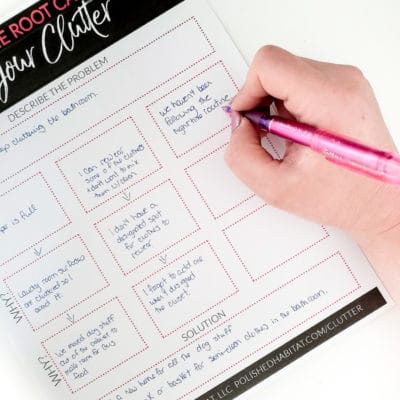 E ROOT CA
Your Clutter
DESCRIBE THE PROBLEM
cluttering the bathroom.
is full
WHY?
Laundry room surfaces
are cluttered so
avoid it.
WHY?
We moved dog stuff
out of the
make room for
food
I can rewear
some of the clothes
+ don't want to mix
them w/clean
I don't have a
designated spot
for clothes to
rewear
I forgot to add one
when I designed
the closet.
we haven't been
following the
nighttime routine
SOLUTION
a new home for all the dog stuff
or basket for semi-clean clothes in the bathroom.
LLC. POLISHEDHABITAT.COM/CLUTTER